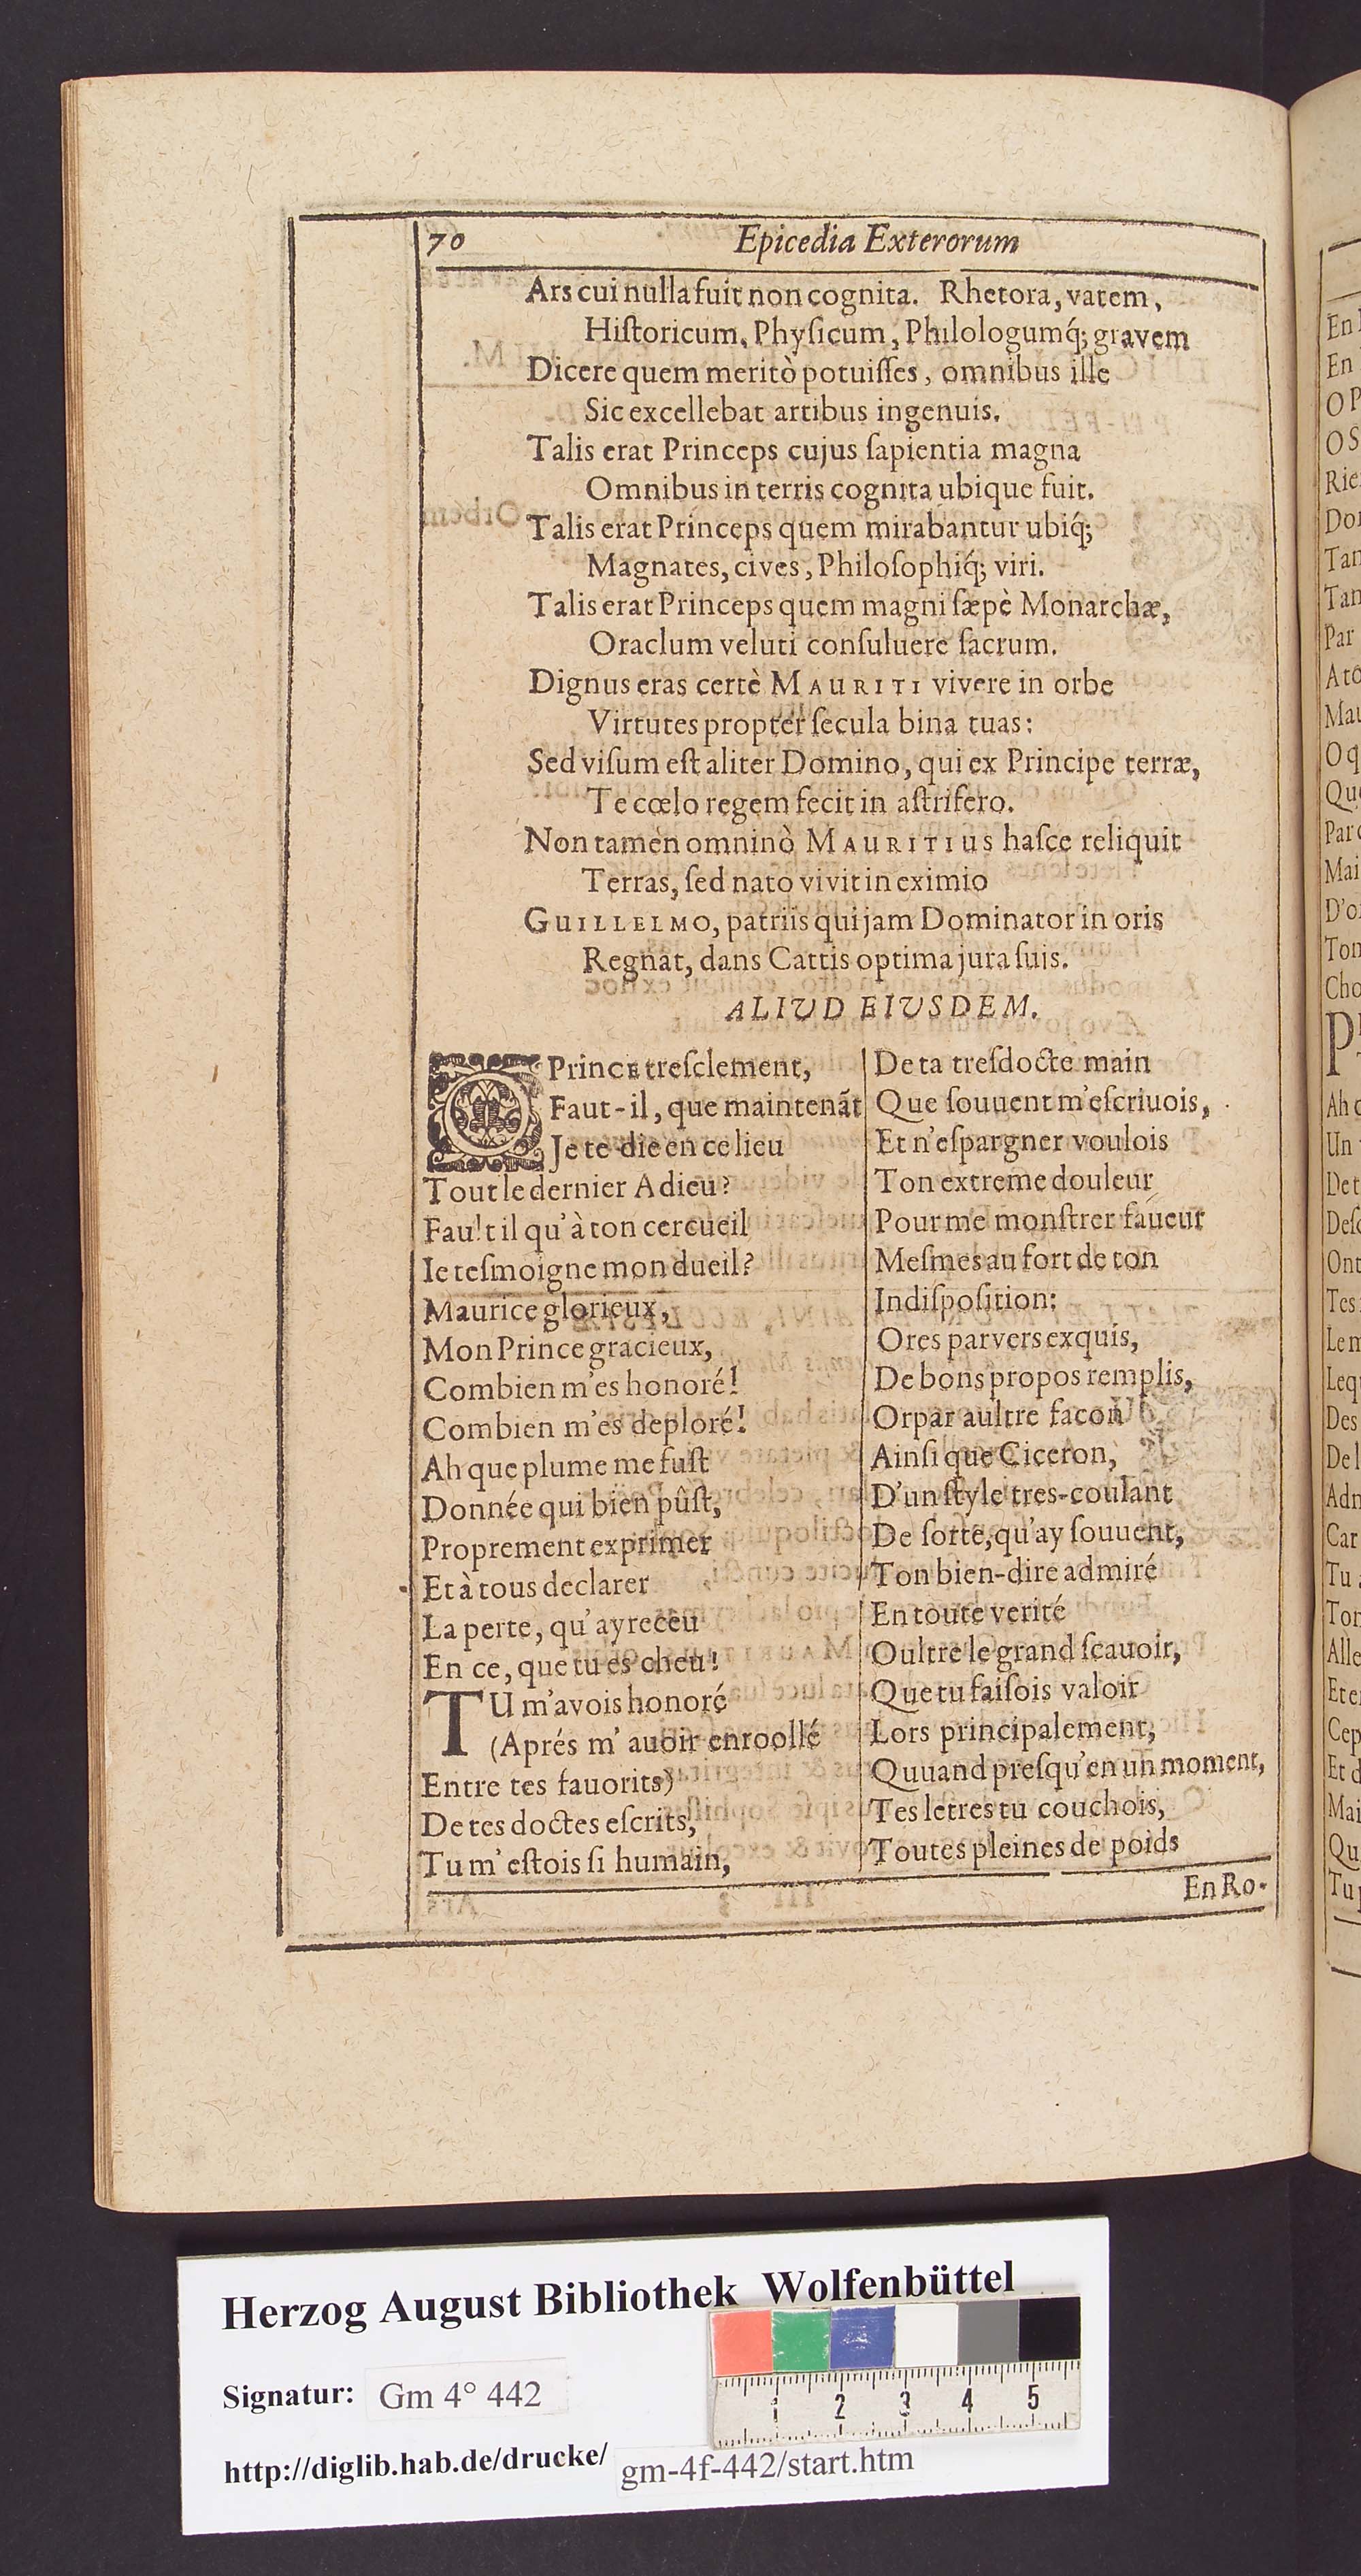 70 Epicedia Exterorum
Ars cui nulla fuit non cognita. Rhetora, vatem,
Hiſtoricum, Phyſicum, Philologumq́; gravem
Dicere quem meritò potuiſſes, omnibus ille
Sic excellebat artibus ingenuis.
Talis erat Princeps cujus ſapientia magna
Omnibus in terris cognita ubique fuit.
Talis erat Princeps quem mirabantur ubiq́;
Magnates, cives, Philoſophiq́; viri.
Talis erat Princeps quem magni ſæpè Monarchæ,
Oraclum veluti conſuluere ſacrum.
Dignus eras certè MAURITI vivere in orbe
Virtutes propter ſecula bina tuas:
Sed viſum eſt aliter Domino, qui ex Principe terræ,
Te cœlo regem fecit in aſtrifero.
Non tamèn omninò MAURITIUS haſce reliquit
Terras, ſed nato vivit in eximio
GUILLELMO, patriis qui jam Dominator in oris
Regnat, dans Cattis optima jura ſuis.
ALIUD EIUSDEM.
O Prince treſclement,
Faut-il, que maintenãt
Je te die en ce lieu
Tout le dernier Adieu?
Fau!t il qu'à ton cercueil
Ie teſmoigne mon dueil?
Maurice glorieux,
Mon Prince gracieux,
Combien m'es honoré!
Combien m'es deploré!
Ah que plume me fuſt
Donnée qui bien pûſt,
Proprement exprimer
Et à tous declarer
La perte, qu'ay receu
En ce, que tu es cheu!
TU m'avois honoré
(Aprés m' auoir enroollé
Entre tes fauorits)
De tes doctes eſcrits,
Tu m' eſtois ſi humain,
De ta treſdocte main
Que ſouuent m'eſcriuois,
Et n'eſpargner voulois
Ton extreme douleur
Pour me monſtrer faueur
Meſmes au fort de ton
Indiſpoſition:
Ores par vers exquis,
De bons propos remplis,
Or par aultre facon
Ainſi que Ciceron,
D'un ſtyle tres-coulant
De ſorte, qu'ay ſouuent,
Ton bien-dire admiré
En toute verité
Oultre le grand ſcauoir,
Que tu faiſois valoir
Lors principalement,
Quuand preſqu'en un moment,
Tes letres tu couchois,
Toutes pleines de poids
En Ro-
En
En
OP
OS
Rie
Tan
Tan
Par
Mau
O q
Que
Par
Mai
D'o
Ton
Cho
Ah
Un
De t
Ont
Tes
Le
Leq
Des
De
Car
Tu
Ton
Alle
Et
Cep
Et
Mai
Qu
Tu
Herzog August Bibliothek Wolfenbüttel
Signatur: Gm 4° 442
http://diglib.hab.de/drucke/ gm-4f-442/start.htm
1 2 3 4 5